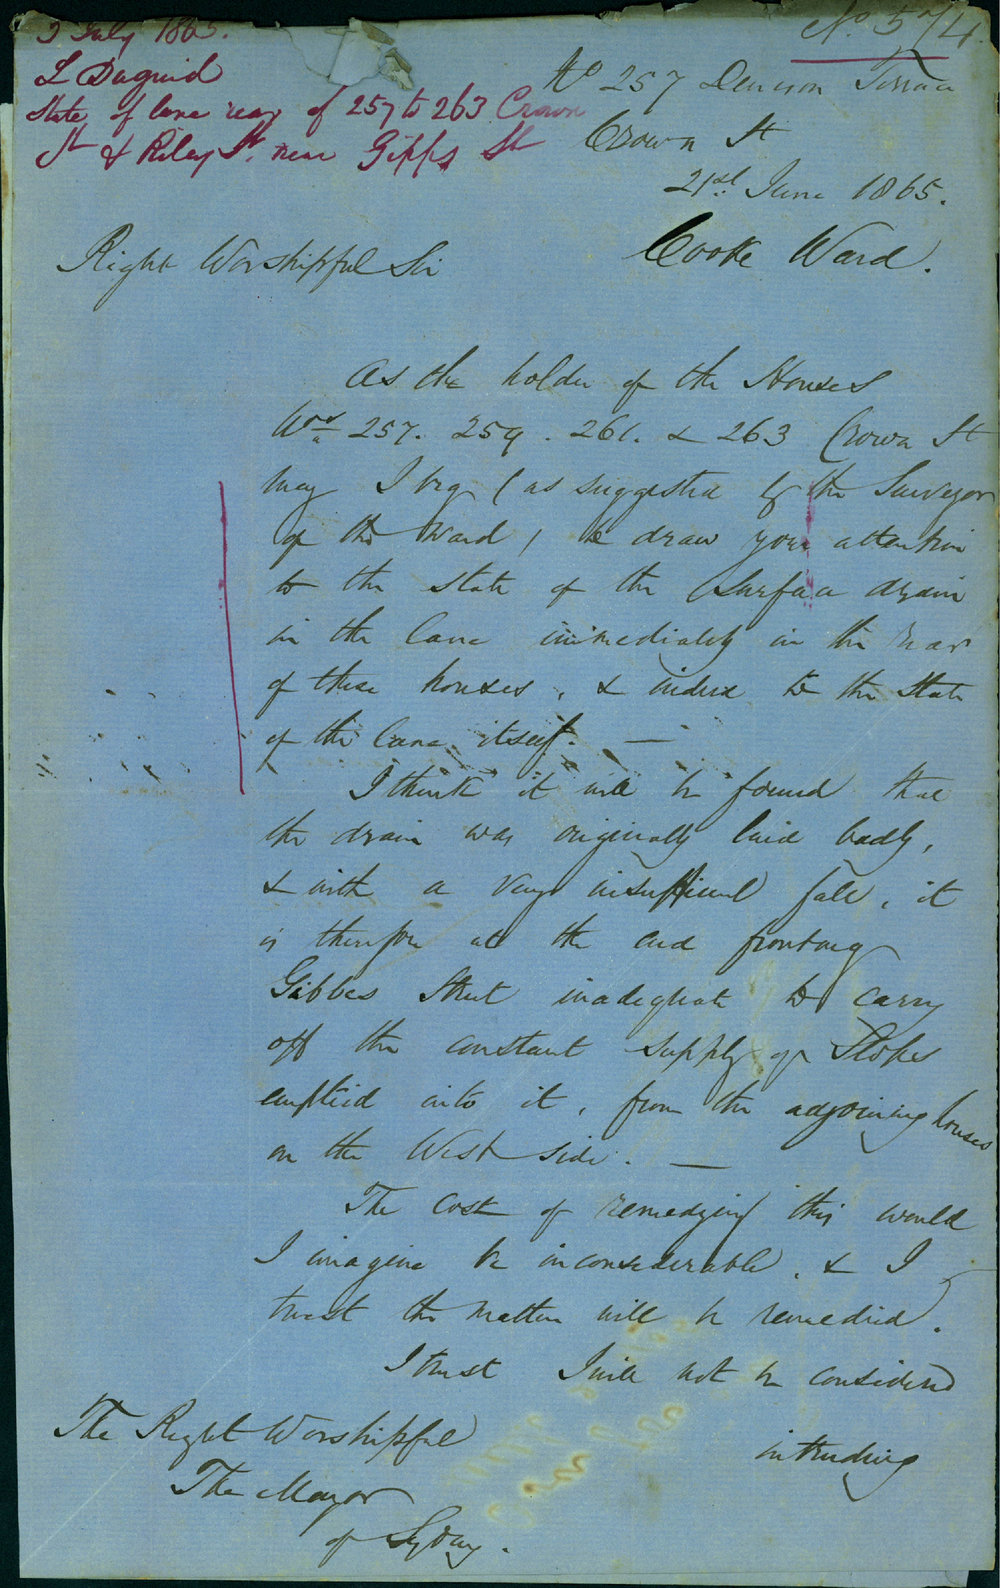 3 July 1865.
L Duguid
State of lane rear of 257 to 263 Crown
St & Riley St. near Gipps St
No. 574
No 257 Denison Terrace
Crown St
21st June 1865.
Cooke Ward.
Right Worshipful Sir
As the holder of the Houses
Nos 257. 259. 261. & 263 Crown St
may I beg (as suggested by the Surveyor
of the Ward) to draw your attention
to the state of the surface drain
in the lane immediately in the rear
of these houses, & indeed to the state
of the lane itself. —
I think it will be found that
the drain was originally laid badly,
& with a very insufficient fall, it
is therefore at the end fronting
Gibbes Street inadequate to carry
off the constant supply of Slops
emptied into it, from the adjoining houses
on the West side. —
The cost of remedying this would
I imagine be inconsiderable. & I
trust the matter will be remedied.
I trust I will not be considered
intruding
The Right Worshipful
The Mayor
of Sydney.